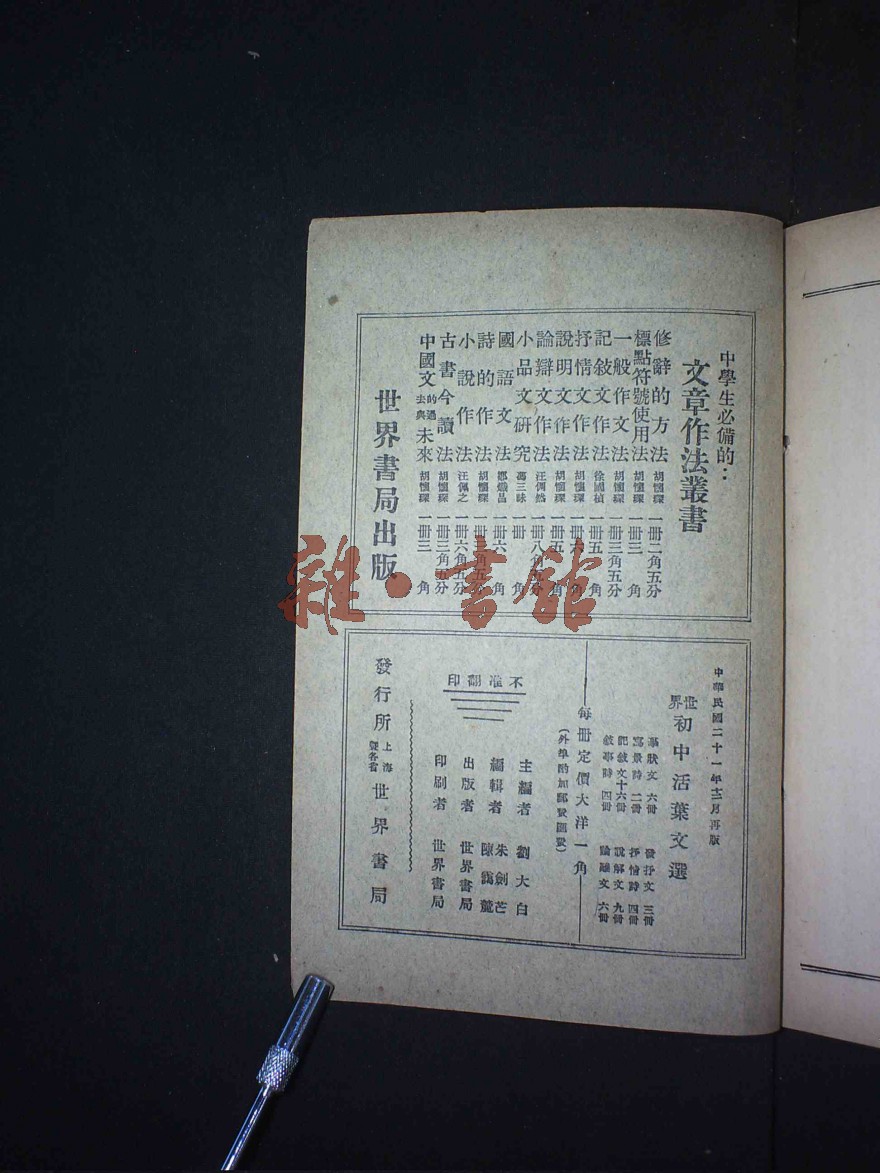 中學生必備的：
文章作法叢書
修辭的方法 胡懷琛 一冊二角五分
標點符號使用法 胡懷琛 一冊三角
一般作文法 胡懷琛 一冊三角五分
記敍文作法 徐國楨 一冊五角
抒情文作法 胡懷琛 一冊六角
說明文作法 胡懷琛 一冊五角
論辯文作法 汪倜然 一冊八角五分
小品文研究 馮三昧 一冊角
國語文法 鄒熾昌 一冊六角
詩的作法 胡懷琛 一冊角五分
小說作法 汪佩之 一冊六角五分
古書今讀法 胡懷琛 一冊三角五分
中國文的過去與未來 胡懷琛 一冊三角
世界書局出版
雜·書館
中華民國二十一年十二月再版
世界初中活葉文選
狀文 六冊 發抒文 三冊
寫景詩 二冊 抒情詩 四冊
記敍文十六冊 說解文 九冊
敍事詩 四冊 論辯文 六冊
每冊定價大洋一角
（外埠酌加郵費匯費）
不准翻印
主編者 劉大白
編輯者 朱劍芒 陳靄麓
出版者 世界書局
印刷者 世界書局
發行所 上海曁各省 世界書局